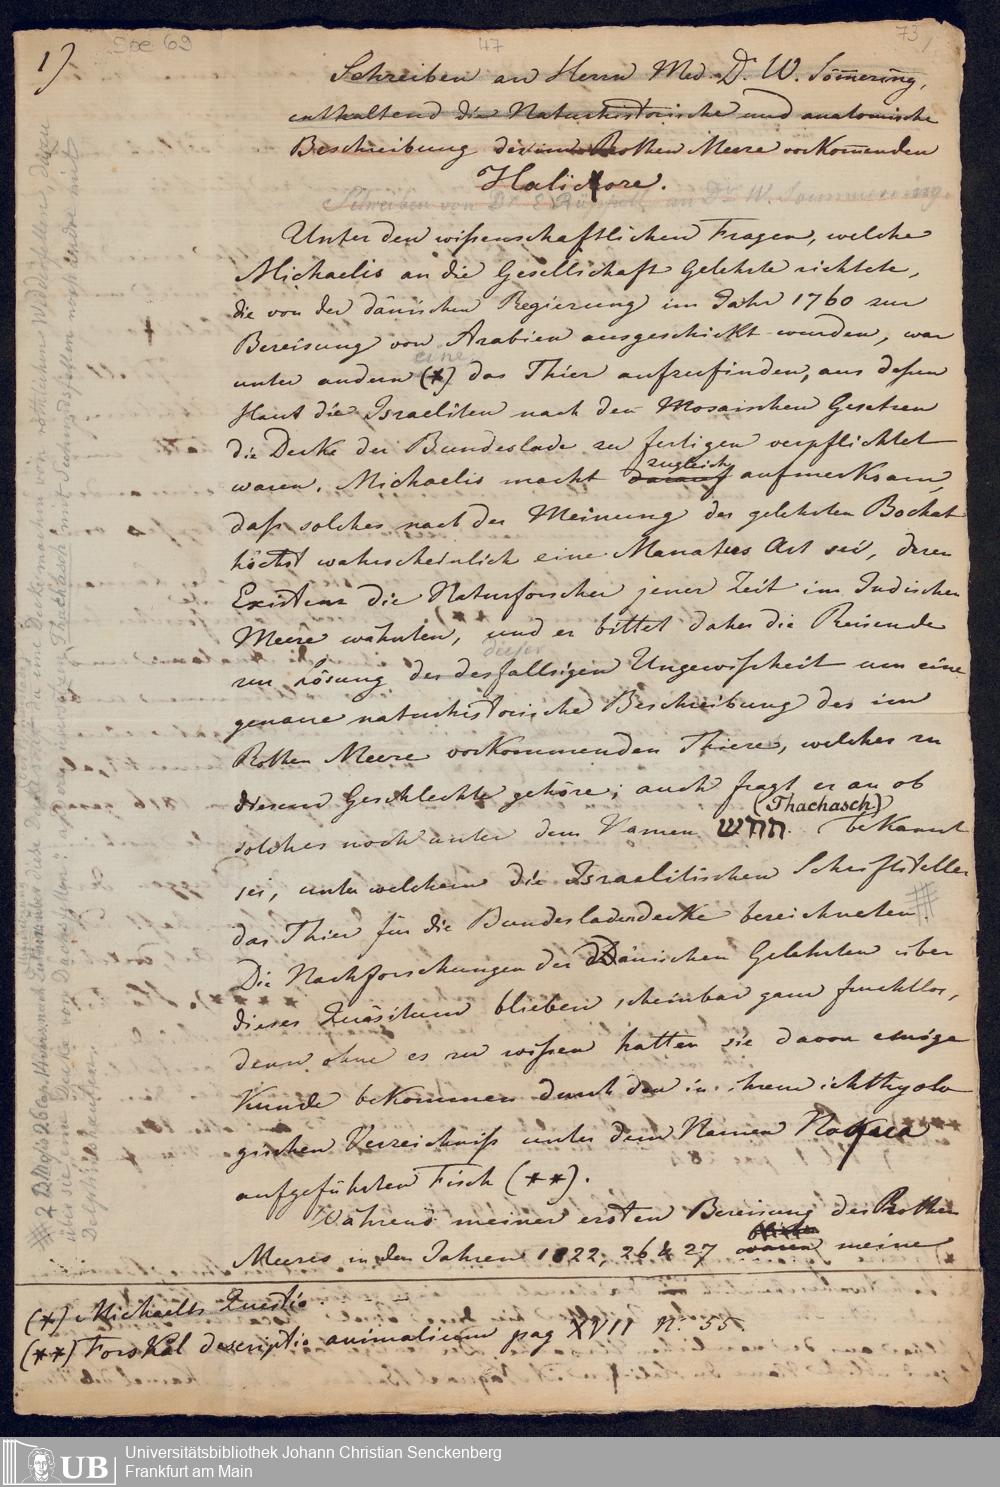 1)
Doc 69
47
73
Schreiben an Herrn Med. Dr. W. Sömering,
enthaltend die Naturhistorische und anatomische
Beschreibung der im Rothen Meere vorkomenden
Halicore.
Schreiben von Dr E. Rüppell an Dr W. Soemmerring.
Unter den wissenschaftlichen Fragen, welche
Michaelis an die Gesellschaft Gelehrte richtete,
die von der dänischen Regierung im Jahr 1760 zur
Bereisung von Arabien ausgeschickt wurden, war
eine
unter andern (*) das Thier aufzufinden, aus dessen
Haut die Israeliten nach den Mosaischen Gesetzen
die Decke der Bundeslade zu fertigen verpflichtet
waren. Michaelis macht darauf zugleich aufmerksam,
dass solches nach der Meinung des gelehrten Bochat
höchst wahrscheinlich eine Manatus Art sei, deren
Existenz die Naturforscher jener Zeit im Indischen
Meere wähnten, und er bittet daher die Reisende
dieser
zur Lösung der desfallsigen Ungewissheit um eine
genaue naturhistorische Beschreibung des im
Rothen Meere vorkommenden Thiers, welches zu
diesem Geschlechte gehöre; auch fragt er an ob
(Thachasch)
solches noch unter dem Namen תחש. bekannt
sei, unter welchem die Israelitischen Schriftsteller
das Thier für die Bundesladendecke bezeichneten.
Die Nachforschungen der Dänischen Gelehrten über
dieses Quäsitum blieben scheinbar ganz fruchtlos,
denn ohne es zu wissen hatten sie davon einige
Kunde bekommen durch den in ihrem ichthyolo
gischen Verzeichniss unter dem Namen Naqua
aufgeführten Fisch (**).
Während meiner ersten Bereisung des Rothen
Meeres in den Jahren 1822, 26 & 27 waren meine
(*) Michaelis Questio
(**) Forskål descriptio animalium pag XVII N: 55.
2 B. Mosis 26 Cap. 14
über sie eine Decke von Dachsfellen:
Thachasch mit Seehundsfellen noch andre mit
Delphinhäuten.
Universitätsbibliothek Johann Christian Senckenberg
Frankfurt am Main
UB